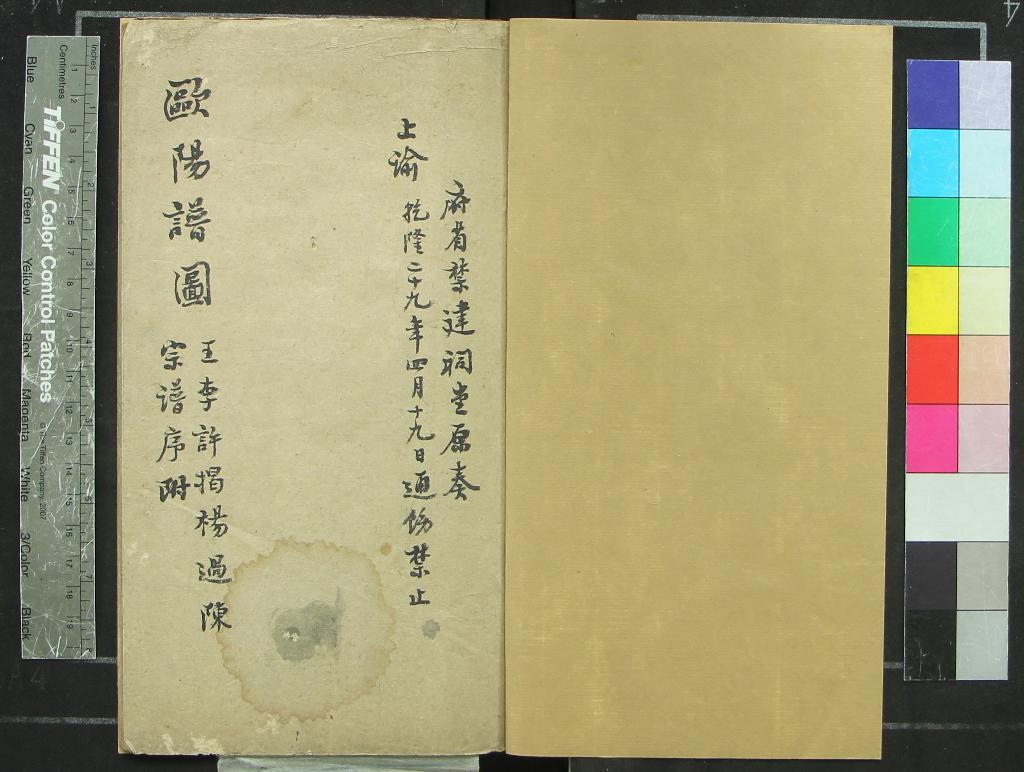 府省禁建祠堂原奏
上諭 乾隆二十九年四月十九日通飭禁止
歐陽譜圖
王李許揭楊過陳
宗譜序附
Inches
Centimetres
TIFFEN Color Control Patches
© The Tiffen Company, 2007
Blue Cyan Green Yellow Red Magenta White 3/Color Black